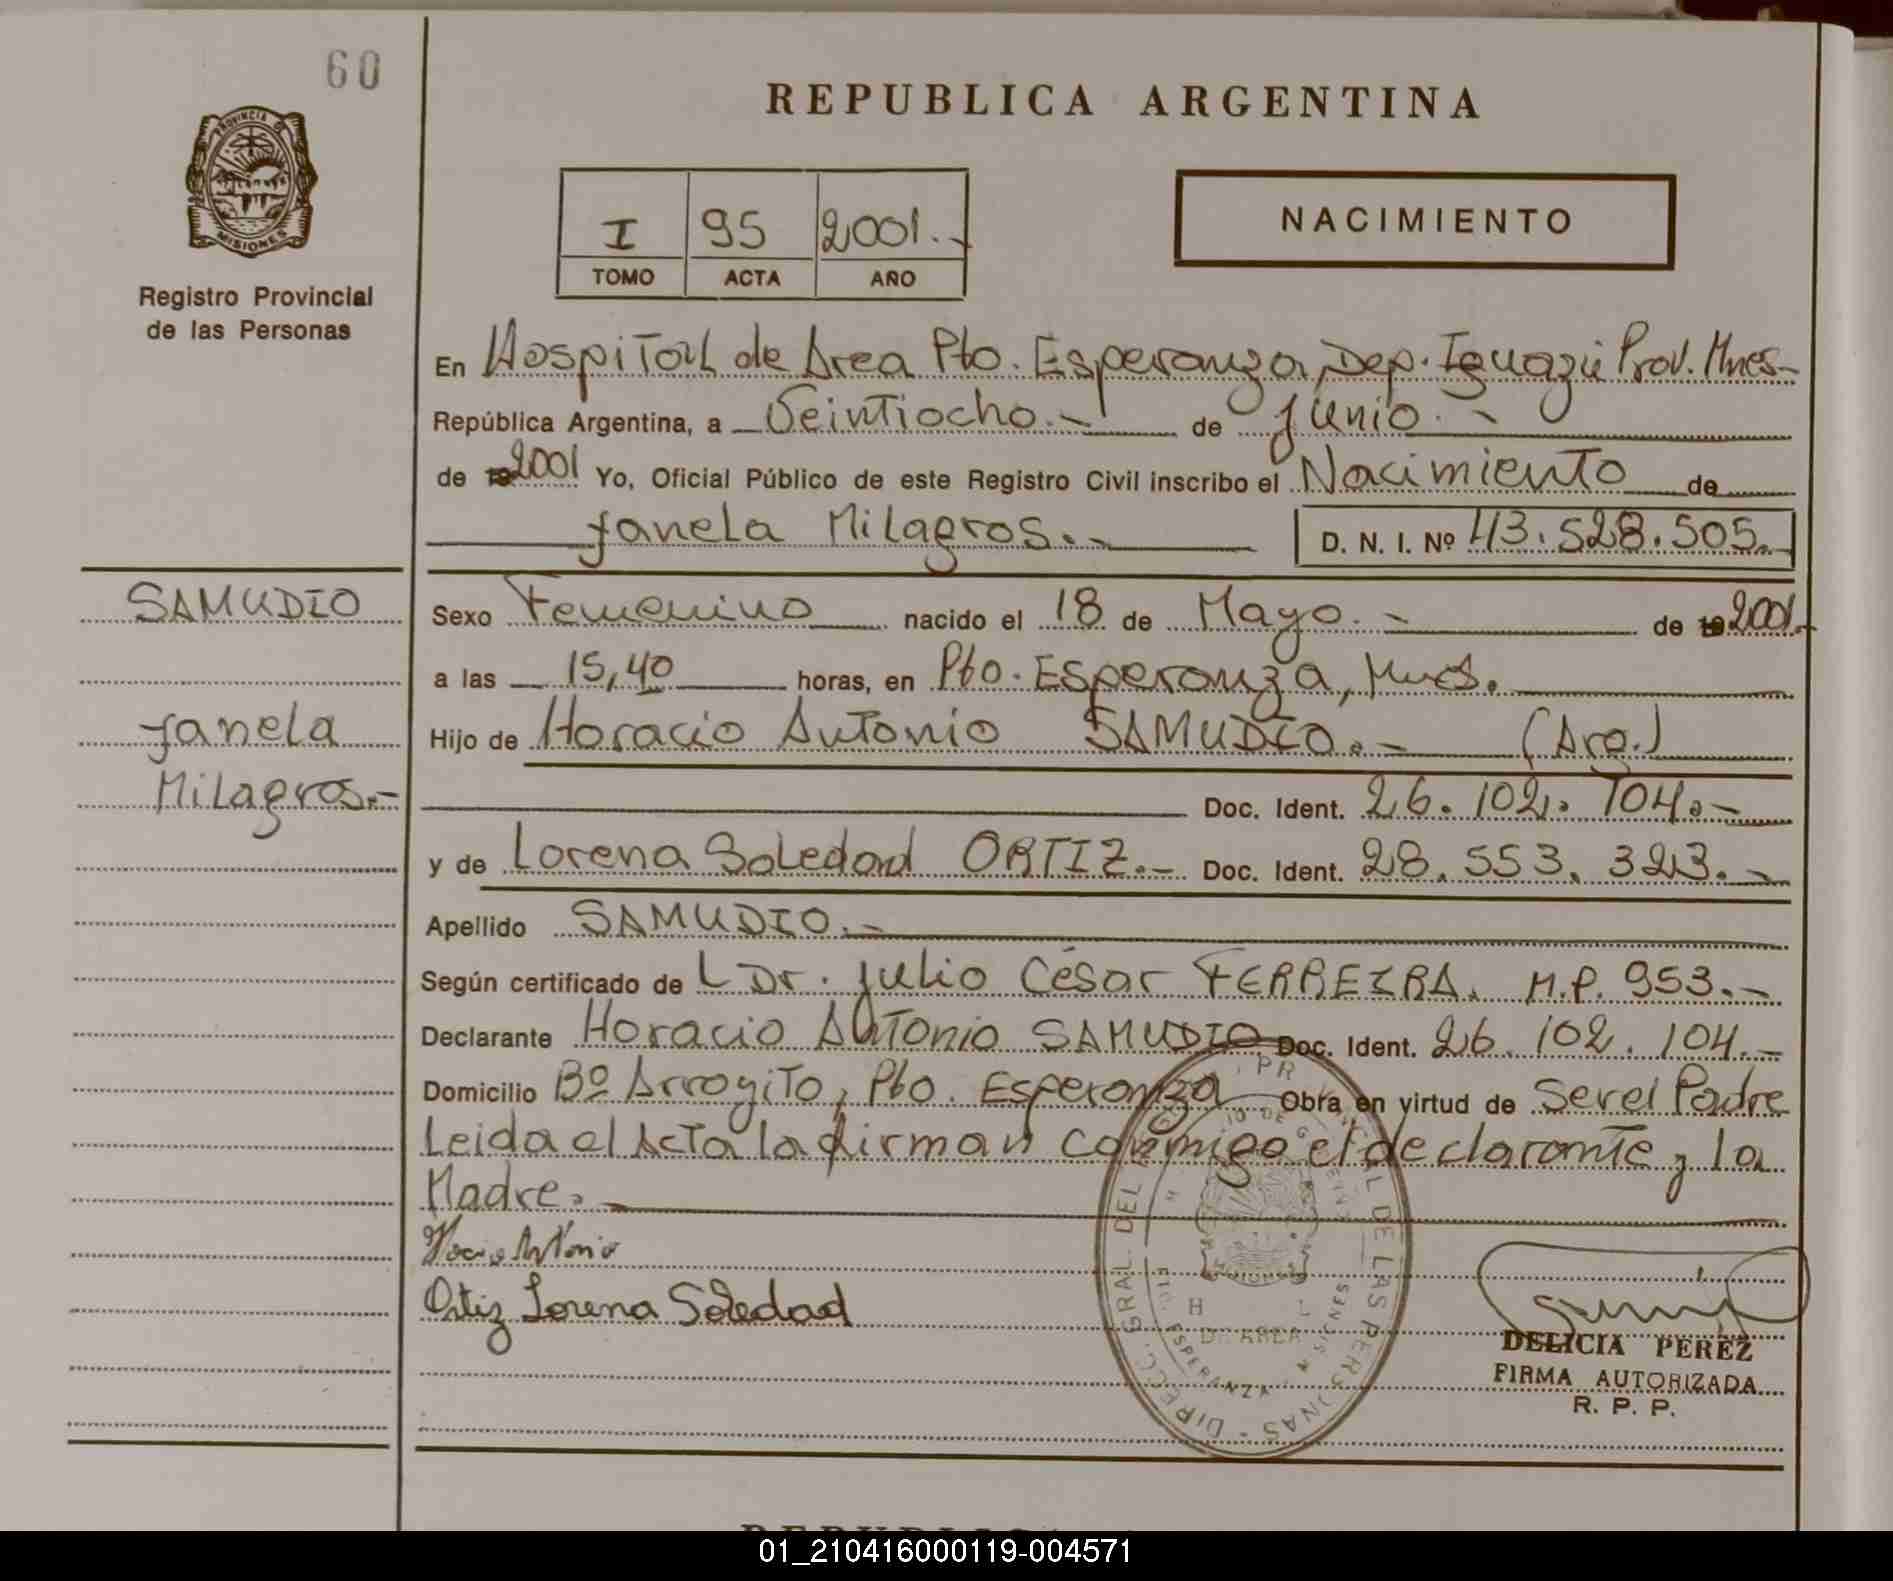 60
REPUBLICA ARGENTINA
PROVINCIA DE
MISIONES
Registro Provincial
de las Personas
I 95 2001.-
TOMO ACTA AÑO
NACIMIENTO
En Hospital de Area Pto. Esperanza, Dep. Iguazú Prov. Mnes-
República Argentina, a Veintiocho.- de Junio.-
de 19 2001 Yo, Oficial Público de este Registro Civil inscribo el Nacimiento de
Yanela Milagros.- D. N. I. Nº 43.528.505.-
SAMUDIO
Sexo Femenino nacido el 18 de Mayo.- de 19 2001.-
a las 15,40 horas, en Pto. Esperanza, Mnes.
Yanela
Hijo de Horacio Antonio SAMUDIO.- (Arg.)
Milagros.-
Doc. Ident. 26.102.104.-
y de Lorena Soledad ORTIZ.- Doc. Ident. 28.553.323.-
Apellido SAMUDIO.-
Según certificado de L Dr. Julio César FERREIRA. M.P. 953.-
Declarante Horacio Antonio SAMUDIO Doc. Ident. 26.102.104.-
Domicilio Bº Arroyito, Pto. Esperanza Obra en virtud de Ser el Padre
Leida el Acta la firman conmigo el declarante y la
Madre.
Antonio
Ortiz Lorena Soledad
DIRECC. GRAL DEL DE LAS PERSONAS
H L
DE AREA
ESPERANZA MISIONES
DELICIA PEREZ
FIRMA AUTORIZADA
R. P. P.
01_210416000119-004571